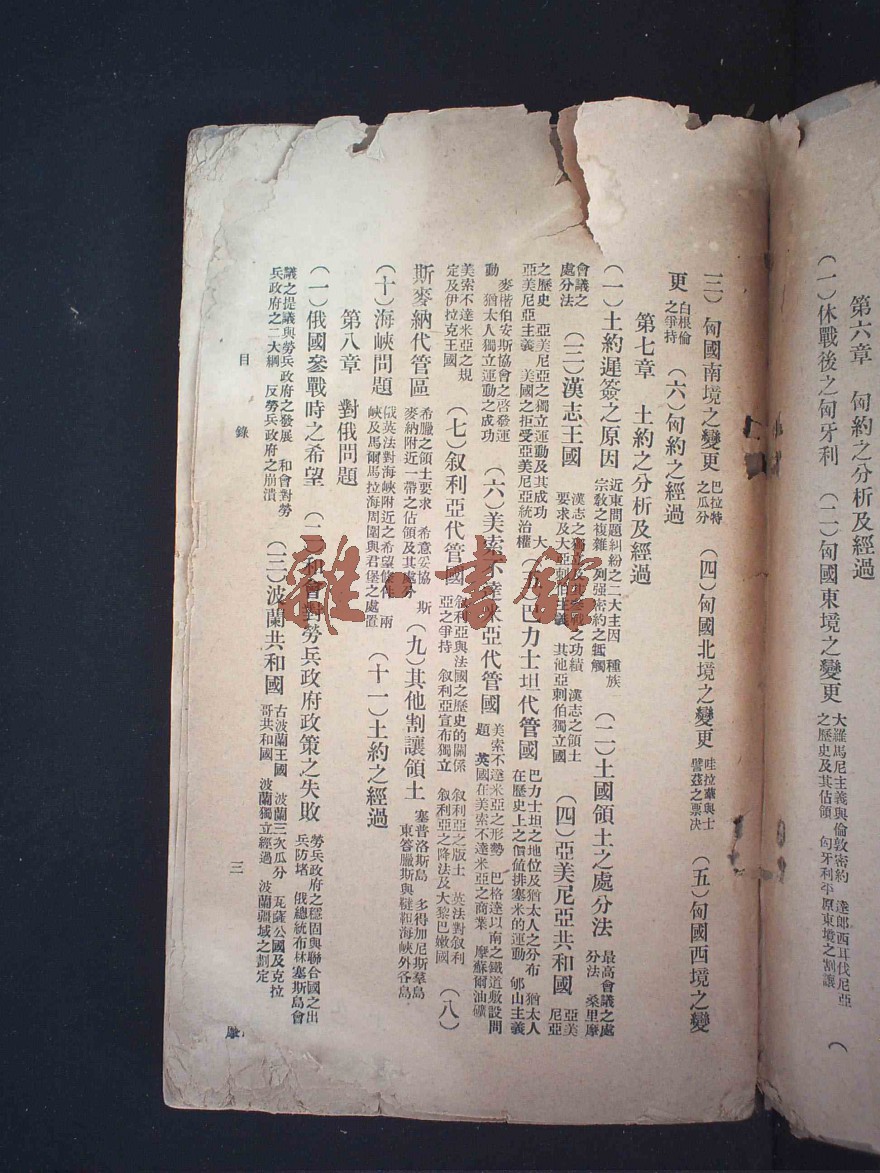 第六章 匈約之分析及經過
(一)休戰後之匈牙利 (二)匈國東境之變更 大羅馬尼主義與倫敦密約 達郎西耳伐尼亞之歷史及其佔領 匈牙利平原東境之割讓 (
三)匈國南境之變更 巴拉特之瓜分 (四)匈國北境之變更 哇拉華與士譬茲之票決 (五)匈國西境之變
更 白根倫之爭持 (六)匈約之經過
第七章 土約之分析及經過
(一)土約遲簽之原因 近東問題糾紛之二大主因 種族宗教之複雜 列强密約之牴觸 (二)土國領土之處分法 最高會議之處分法 桑里摩
會議之處分法 (三)漢志王國 漢志之獨立及其參戰之功績 漢志之領土要求及大亞剌伯主義 其他亞剌伯獨立國 (四)亞美尼亞共和國 亞美尼亞
之歷史 亞美尼亞之獨立運動及其成功 大亞美尼亞主義 美國之拒受亞美尼亞統治權 (五)巴力士坦代管國 巴力士坦之地位及猶太人之分布 猶太人在歷史上之價値排塞米的運動 郇山主義
麥楷伯安斯協會之啓發運動 猶太人獨立運動之成功 (六)美索不達米亞代管國 美索不達米亞之形勢 巴格達以南之鐵道敷設問題 英國在美索不達米亞之商業 摩蘇爾油礦
美索不達米亞之規定及伊拉克王國 (七)叙利亞代管國 叙利亞與法國之歷史的關係 叙利亞之版土 英法對叙利亞之爭持 叙利亞宣布獨立 叙利亞之降法及大黎巴嫩國 (八)
斯麥納代管區 希臘之領土要求 希意妥協 斯麥納附近一帶之佔領及其處分 (九)其他割讓領土 塞普洛斯島 多得加尼斯羣島 東答臘斯與韃靼海峽外各島
(十)海峽問題 俄英法對海峽附近之希望條件 兩峽及馬爾馬拉海周圍與君堡之處置 (十一)土約之經過
第八章 對俄問題
(一)俄國參戰時之希望 (二)和會對勞兵政府政策之失敗 勞兵政府之穩固與聯合國之出兵防堵 俄總統布林塞斯島會
議之提議與勞兵政府之發展 和會對勞兵政府之二大綱 反勞兵政府之崩潰 (三)波蘭共和國 古波蘭王國 波蘭三次瓜分 瓦薩公國及克拉哥共和國 波蘭獨立經過 波蘭疆域之劃定
目錄 三
雜·書館